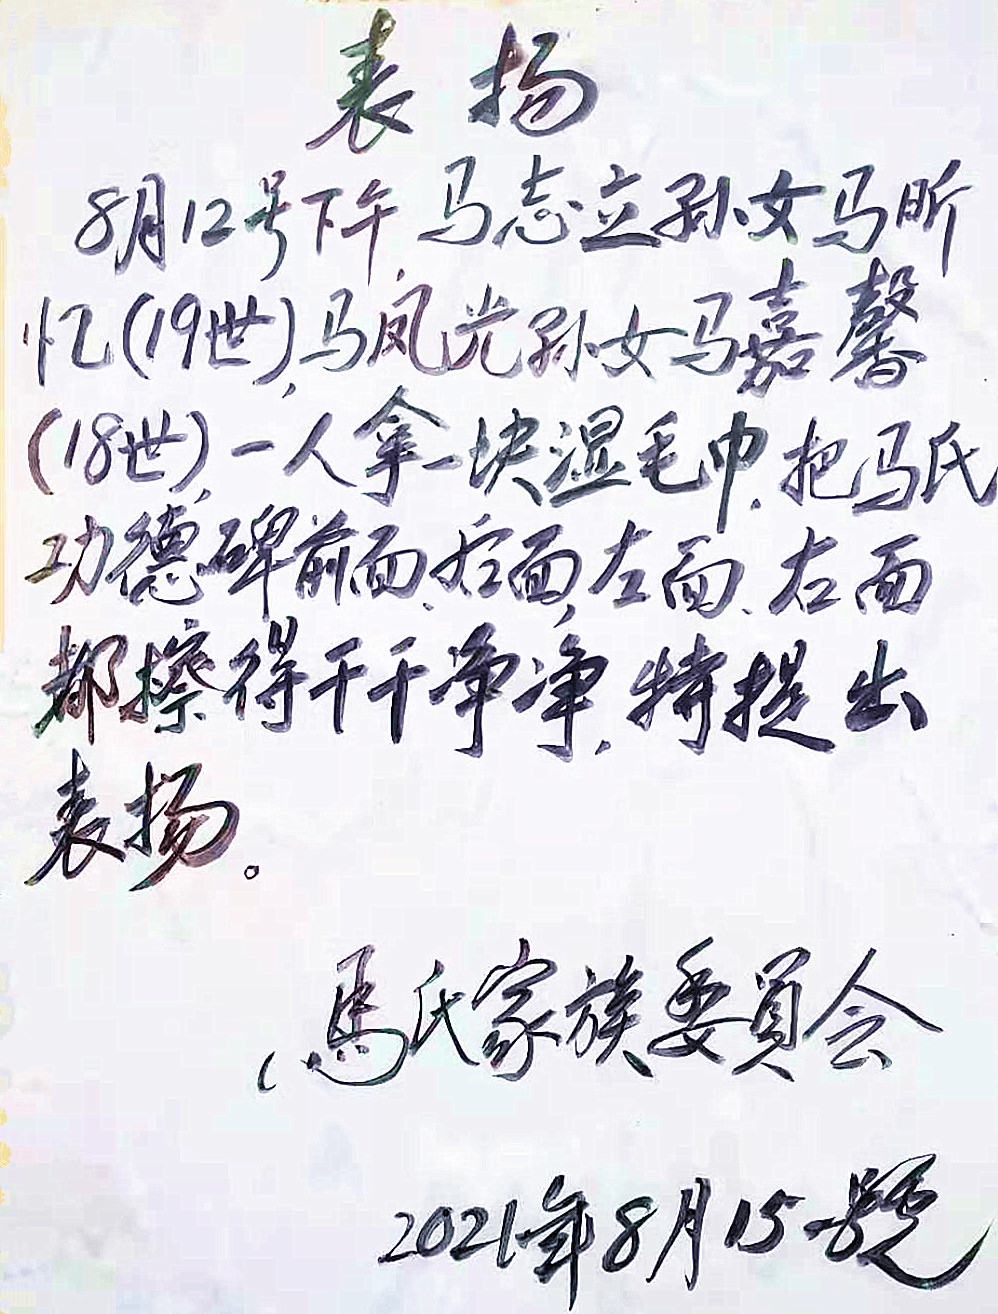 表扬
8月12号下午,马志立孙女马昕
忆(19世),马凤光孙女马嘉馨
(18世),一人拿一块湿毛巾.把马氏
功德碑前面.后面,左面.右面
都擦得干干净净,特提出
表扬。
馬氏家族委員会
2021年8月15號